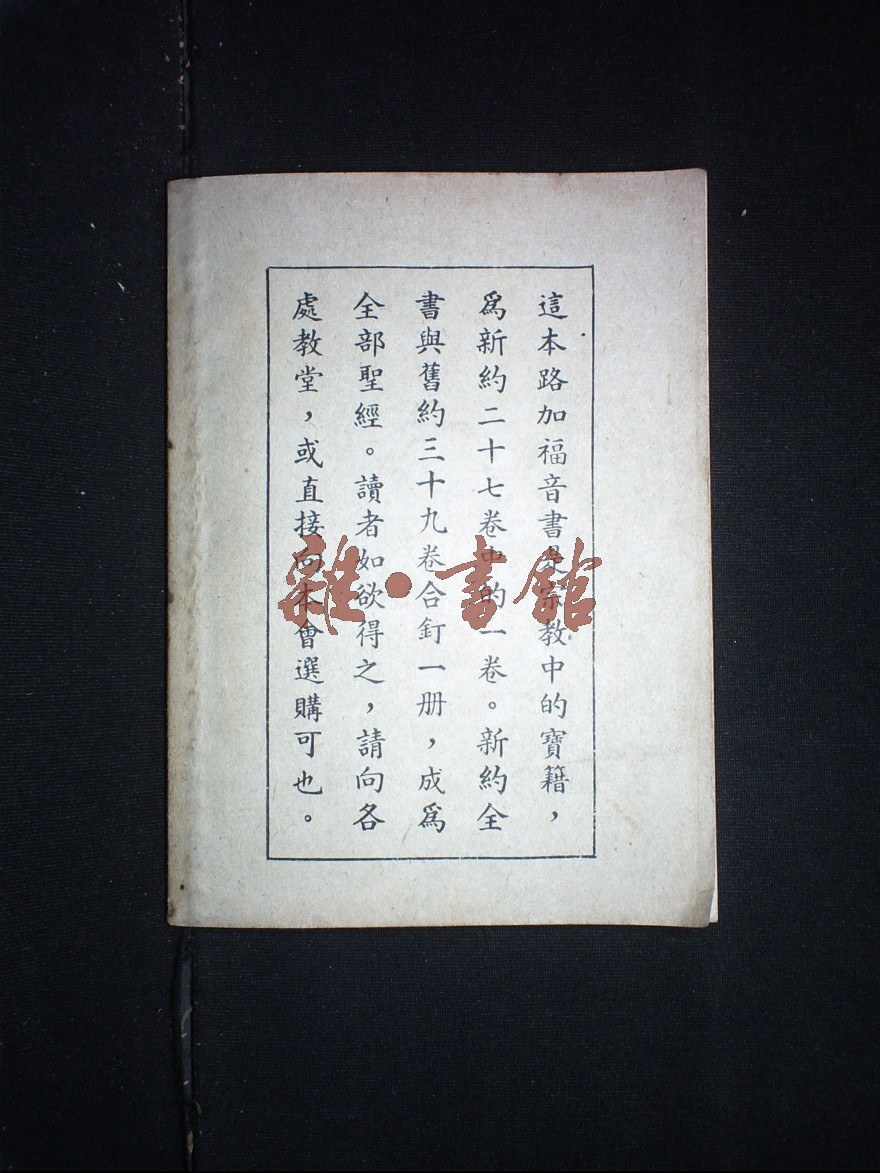 這本路加福音書是宗教中的寶籍，
爲新約二十七卷中的一卷。新約全
書與舊約三十九卷合釘一册，成爲
全部聖經。讀者如欲得之，請向各
處教堂，或直接向本會選購可也。
雜·書館